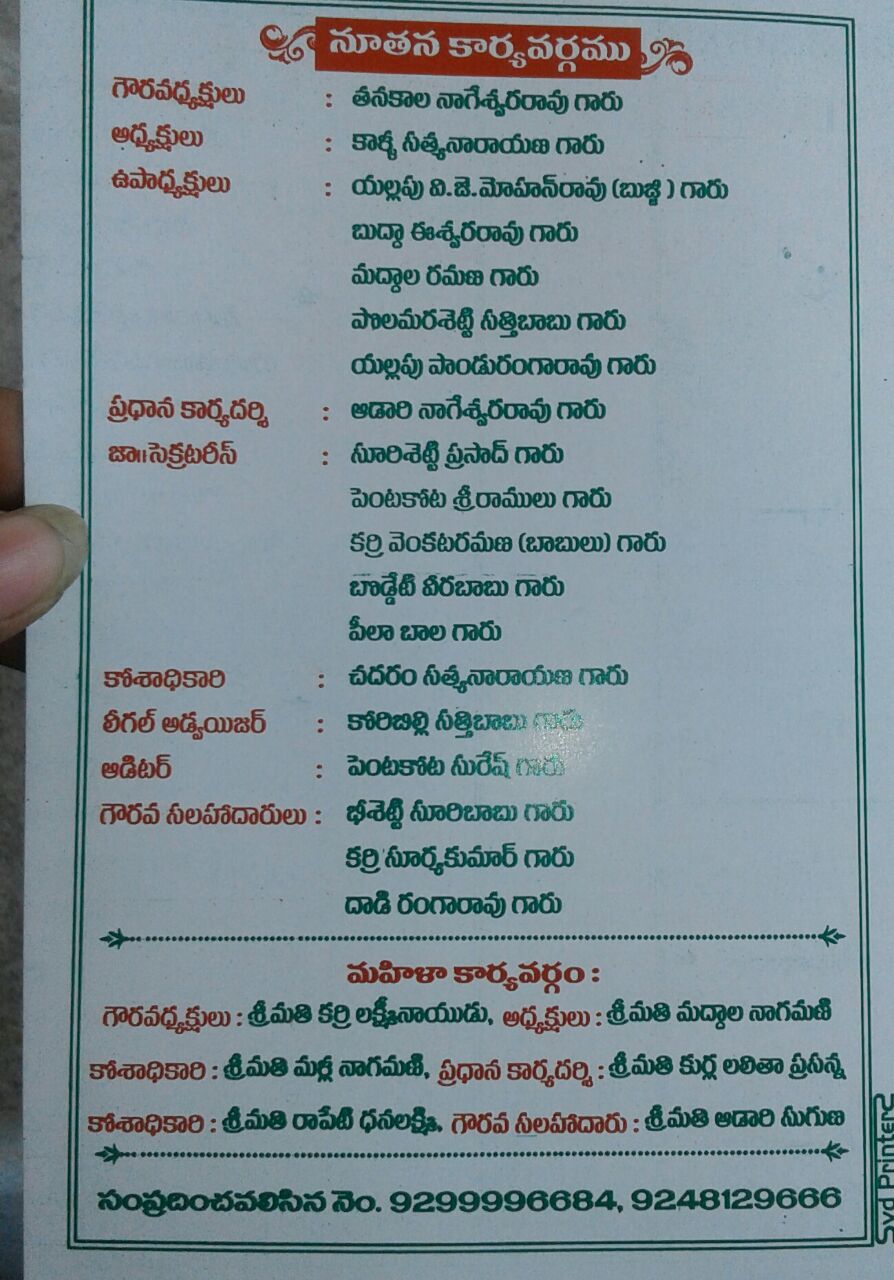 నూతన కార్యవర్గము
గౌరవధ్యక్షులు : తనకాల నాగేశ్వరరావు గారు
అధ్యక్షులు : కార్శీ సత్యనారాయణ గారు
ఉపాధ్యక్షులు : యల్లపు వి.జె.మోహన్‌రావు (బుజ్జి) గారు
బుద్దా ఈశ్వరరావు గారు
మద్దాల రమణ గారు
పొలమరశెట్టి సత్తిబాబు గారు
యల్లపు పాండురంగారావు గారు
ప్రధాన కార్యదర్శి : ఆడారి నాగేశ్వరరావు గారు
జా॥సెక్రటరీస్ : సూరిశెట్టి ప్రసాద్ గారు
పెంటకోట శ్రీరాములు గారు
కర్రి వెంకటరమణ (బాబులు) గారు
బొడ్డేటి వీరబాబు గారు
పీలా బాల గారు
కోశాధికారి : చదరం సత్యనారాయణ గారు
లీగల్ అడ్వయిజర్ : కోరిబిల్లి సత్తిబాబు గారు
ఆడిటర్ : పెంటకోట సురేష్ గారు
గౌరవ సలహాదారులు : భీశెట్టి సూరిబాబు గారు
కర్రి సూర్యకుమార్ గారు
దాడి రంగారావు గారు
మహిళా కార్యవర్గం :
గౌరవధ్యక్షులు : శ్రీమతి కర్రి లక్ష్మీనాయుడు, అధ్యక్షులు : శ్రీమతి మద్దాల నాగమణి
కోశాధికారి : శ్రీమతి మళ్ల నాగమణి, ప్రధాన కార్యదర్శి : శ్రీమతి కుర్ల లలితా ప్రసన్న
కోశాధికారి : శ్రీమతి రాపేటి ధనలక్ష్మి, గౌరవ సలహాదారు : శ్రీమతి ఆడారి సుగుణ
సంప్రదించవలసిన నెం. 9299996684, 9248129666